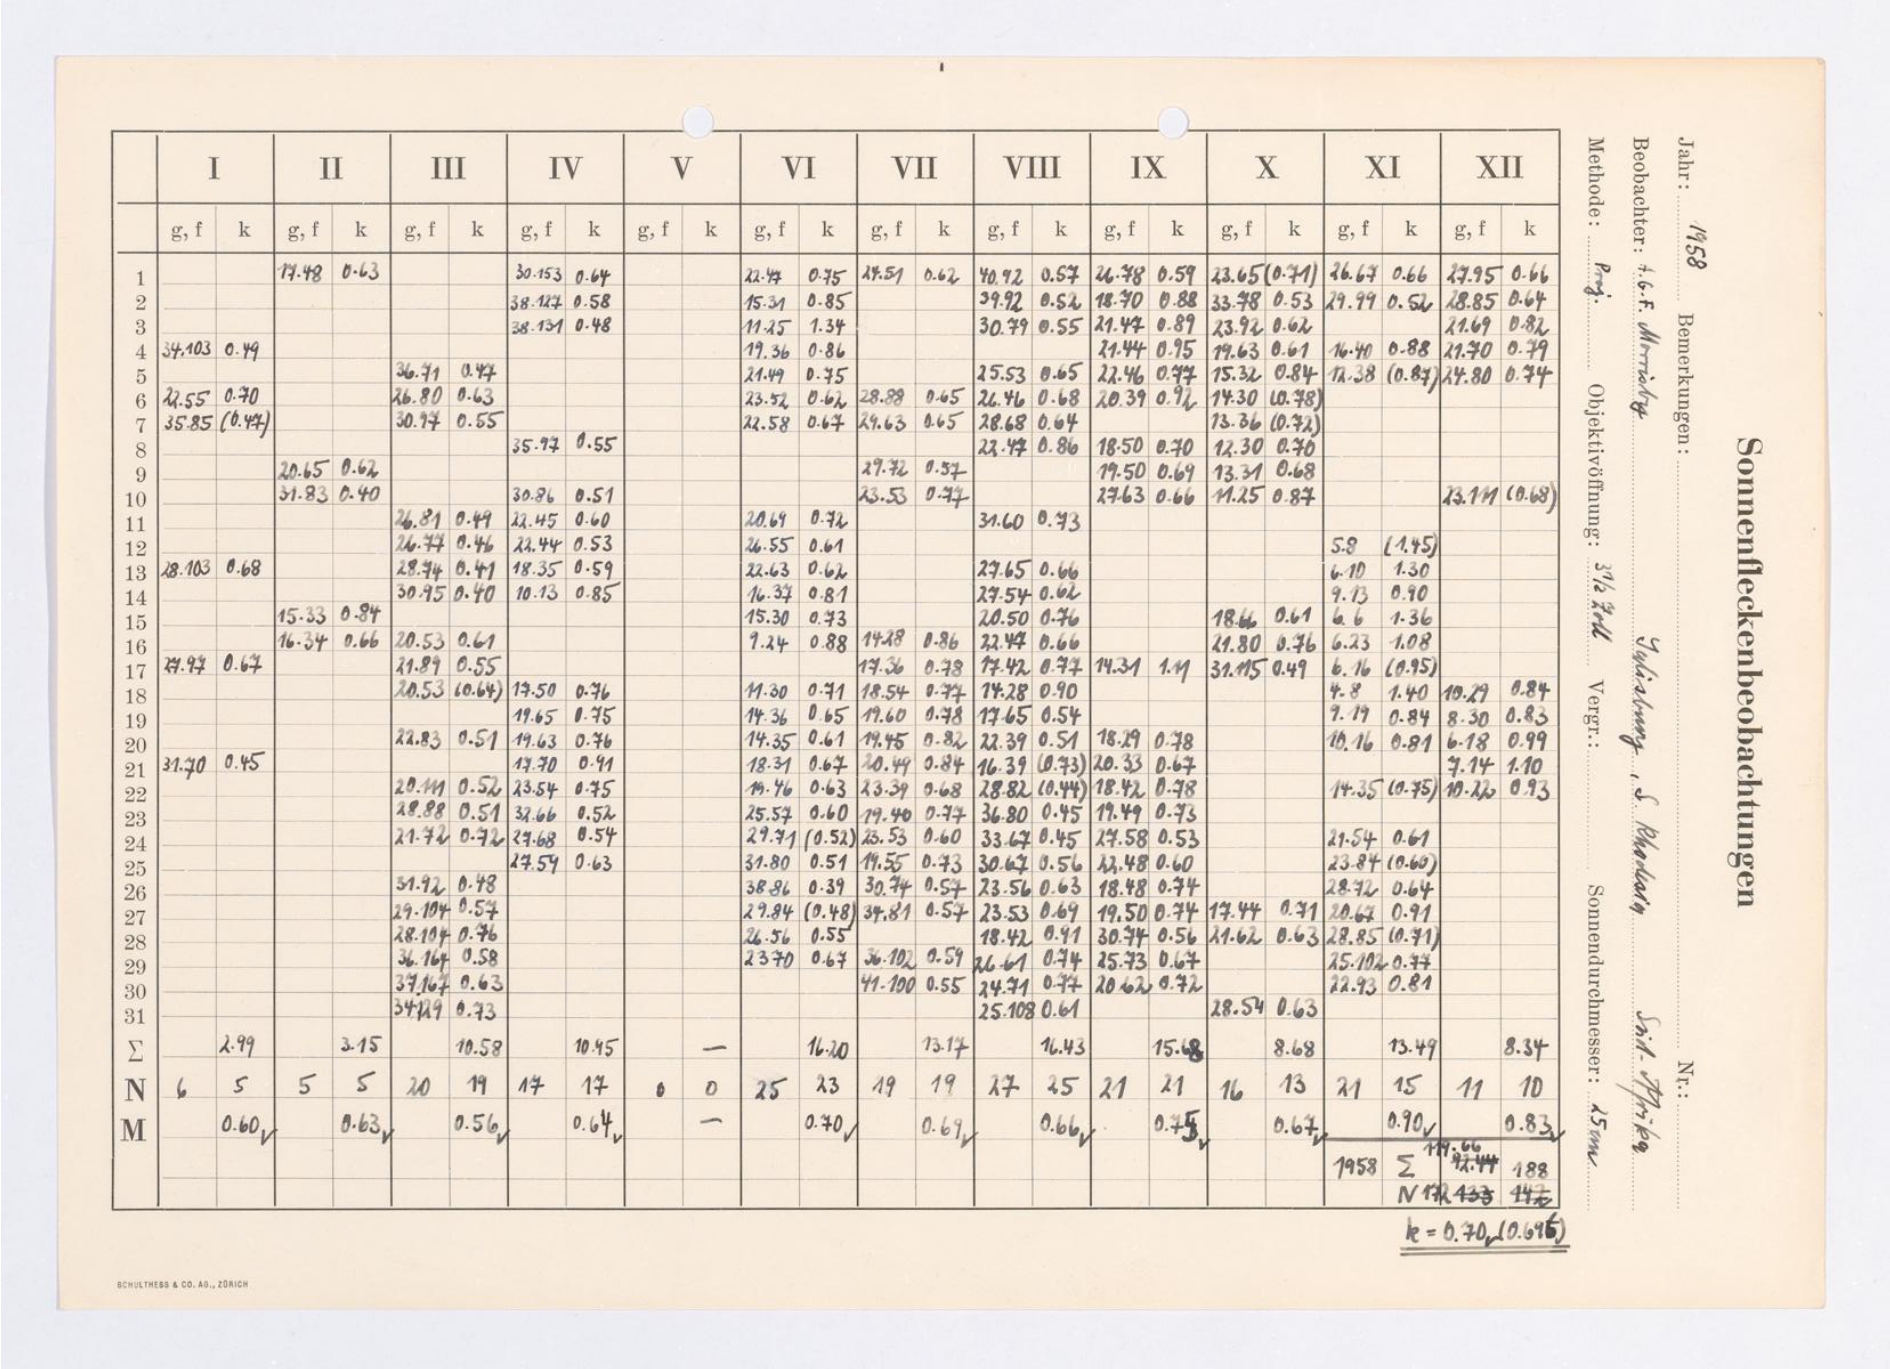 I II III IV V VI VII VIII IX X XI XII
g, f k g, f k g, f k g, f k g, f k g, f k g, f k g, f k g, f k g, f k g, f k g, f k
1 17.48 0.63 30.153 0.64 22.47 0.75 24.51 0.62 40.92 0.57 26.78 0.59 23.65 (0.71) 26.67 0.66 27.95 0.66
2 38.127 0.58 15.31 0.85 39.92 0.52 18.70 0.88 33.78 0.53 29.99 0.52 28.85 0.64
3 38.131 0.48 11.25 1.34 30.79 0.55 21.47 0.89 23.92 0.62 21.69 0.82
4 34.103 0.49 19.36 0.86 21.44 0.95 19.63 0.61 16.40 0.88 21.70 0.79
5 36.71 0.47 21.49 0.75 25.53 0.65 22.46 0.77 15.32 0.84 12.38 (0.87) 24.80 0.74
6 22.55 0.70 26.80 0.63 23.52 0.62 28.88 0.65 26.46 0.68 20.39 0.92 14.30 (0.78)
7 35.85 (0.47) 30.97 0.55 22.58 0.67 29.63 0.65 28.68 0.64 13.36 (0.72)
8 35.97 0.55 22.47 0.86 18.50 0.70 12.30 0.70
9 20.65 0.62 29.72 0.57 19.50 0.69 13.31 0.68
10 31.83 0.40 30.86 0.51 23.53 0.77 27.63 0.66 11.25 0.87 23.111 (0.68)
11 26.81 0.49 22.45 0.60 20.69 0.72 31.60 0.73
12 26.77 0.46 22.44 0.53 26.55 0.61 5.8 (1.45)
13 28.103 0.68 28.74 0.41 18.35 0.59 22.63 0.62 27.65 0.66 6.10 1.30
14 30.95 0.40 10.13 0.85 16.37 0.81 27.54 0.62 9.13 0.90
15 15.33 0.84 15.30 0.73 20.50 0.76 18.66 0.61 6.6 1.36
16 16.34 0.66 20.53 0.61 9.24 0.88 14.28 0.86 22.47 0.66 21.80 0.76 6.23 1.08
17 27.97 0.67 21.89 0.55 17.36 0.78 17.42 0.77 14.31 1.11 31.115 0.49 6.16 (0.95)
18 20.53 (0.64) 17.50 0.76 11.30 0.71 18.54 0.77 14.28 0.90 4.8 1.40 10.29 0.84
19 19.65 0.75 14.36 0.65 19.60 0.78 17.65 0.54 9.19 0.84 8.30 0.83
20 22.83 0.51 19.63 0.76 14.35 0.61 19.45 0.82 22.39 0.51 18.29 0.78 10.16 0.81 6.18 0.99
21 31.70 0.45 17.70 0.91 18.31 0.67 20.49 0.84 16.39 (0.73) 20.33 0.67 7.14 1.10
22 20.111 0.52 23.54 0.75 19.46 0.63 23.39 0.68 28.82 (0.44) 18.42 0.78 14.35 (0.75) 10.22 0.93
23 28.88 0.51 32.66 0.52 25.57 0.60 19.40 0.77 36.80 0.45 19.49 0.73
24 21.72 0.72 27.68 0.54 29.71 (0.52) 23.53 0.60 33.67 0.45 27.58 0.53 21.54 0.61
25 27.59 0.63 31.80 0.51 19.55 0.73 30.67 0.56 22.48 0.60 23.84 (0.60)
26 31.92 0.48 38.86 0.39 30.74 0.57 23.56 0.63 18.48 0.74 28.72 0.64
27 29.104 0.57 29.84 (0.48) 34.81 0.57 23.53 0.69 19.50 0.74 17.44 0.71 20.67 0.91
28 28.104 0.76 26.56 0.55 18.42 0.91 30.74 0.56 21.62 0.63 28.85 (0.71)
29 36.164 0.58 23.70 0.67 36.102 0.59 26.61 0.74 25.73 0.67 25.102 0.77
30 37.167 0.63 41.100 0.55 24.71 0.77 20.62 0.72 22.93 0.81
31 34.129 0.73 25.108 0.61 28.54 0.63
Σ 2.99 3.15 10.58 10.95 — 16.20 13.17 16.43 15.68 8.68 13.49 8.34
N 6 5 5 5 20 19 17 17 0 0 25 23 19 19 27 25 21 21 16 13 21 15 11 10
M 0.60 0.63 0.56 0.64 — 0.70 0.69 0.66 0.75 0.67 0.90 0.83
119.66
1958 Σ 92.44 188
N 172 133 147
k = 0.70 (0.696)
SCHULTHESS & CO. AG., ZÜRICH
Sonnenfleckenbeobachtungen
Jahr: 1958 Bemerkungen: Nr.:
Beobachter: Morrisby Salisbury, S. Rhodesia Süd-Afrika
Methode: Proj. Objektivöffnung: 3 1/2 Zoll Vergr.: Sonnendurchmesser: 25 cm